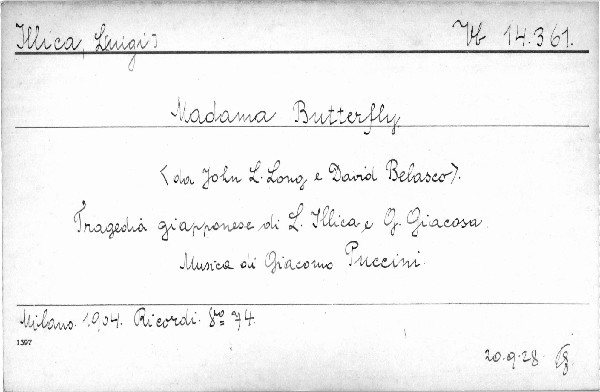 Illica, Luigi
Vb 14.361.
Madama Butterfly
<da John L. Long e David Belasco>.
Tragedia giapponese di L. Illica e G. Giacosa
Musica di Giacomo Puccini.
Milano. 1904. Ricordi. 8vo 74.
1397
20.9.28